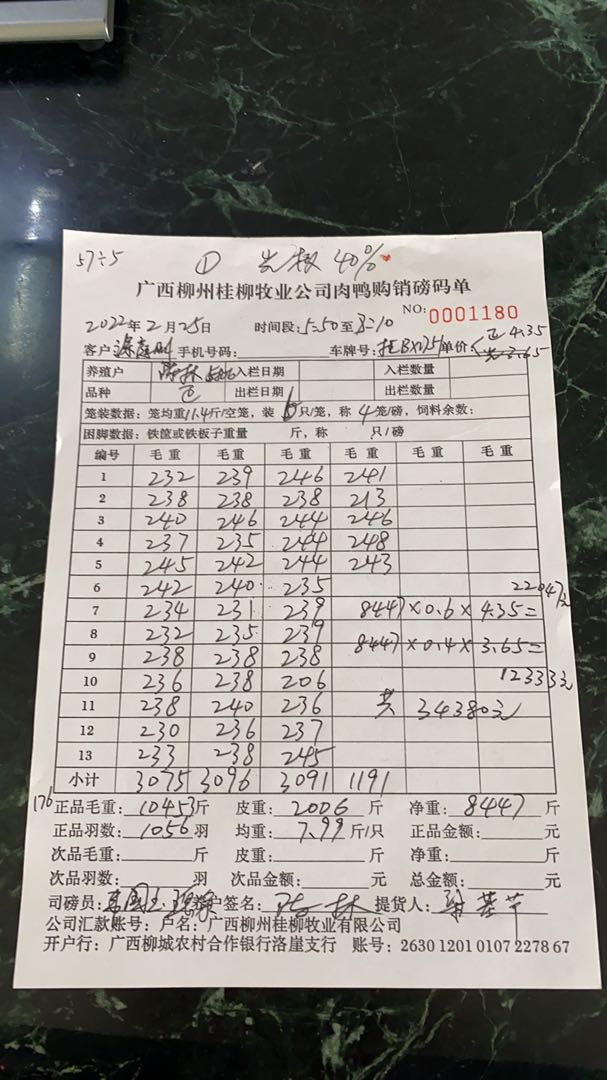 57÷5 ① 40%
广西柳州桂柳牧业公司肉鸭购销磅码单
NO: 0001180
2022年2月25日 时间段: 5:50至8:10
正 4.35
客户 手机号码: 车牌号: 单价 3.65
养殖户 入栏日期 入栏数量
品种 出栏日期 出栏数量
笼装数据: 笼均重11.4斤/空笼, 装6只/笼, 称4笼/磅, 饲料余数:
困脚数据: 铁筐或铁板子重量 斤, 称 只/磅
编号 毛重 毛重 毛重 毛重 毛重 毛重
1 232 239 246 241
2 238 238 238 213
3 240 246 244 246
4 237 235 244 248
5 245 242 244 243
6 242 240 235 22047元
7 234 231 239 8447×0.6×4.35=
8 232 235 239
9 238 238 238 8447×0.4×3.65=
10 236 238 206 12333元
11 238 240 236 共 34380元
12 230 236 237
13 233 238 245
小计 3075 3096 3091 1191
176 正品毛重: 10453斤 皮重: 2006斤 净重: 8447斤
正品羽数: 1056羽 均重: 7.99斤/只 正品金额: 元
次品毛重: 斤 皮重: 斤 净重: 斤
次品羽数: 羽 次品金额: 元 总金额: 元
司磅员: 户签名: 提货人:
公司汇款账号: 户名: 广西柳州桂柳牧业有限公司
开户行: 广西柳城农村合作银行洛崖支行 账号: 2630 1201 0107 2278 67